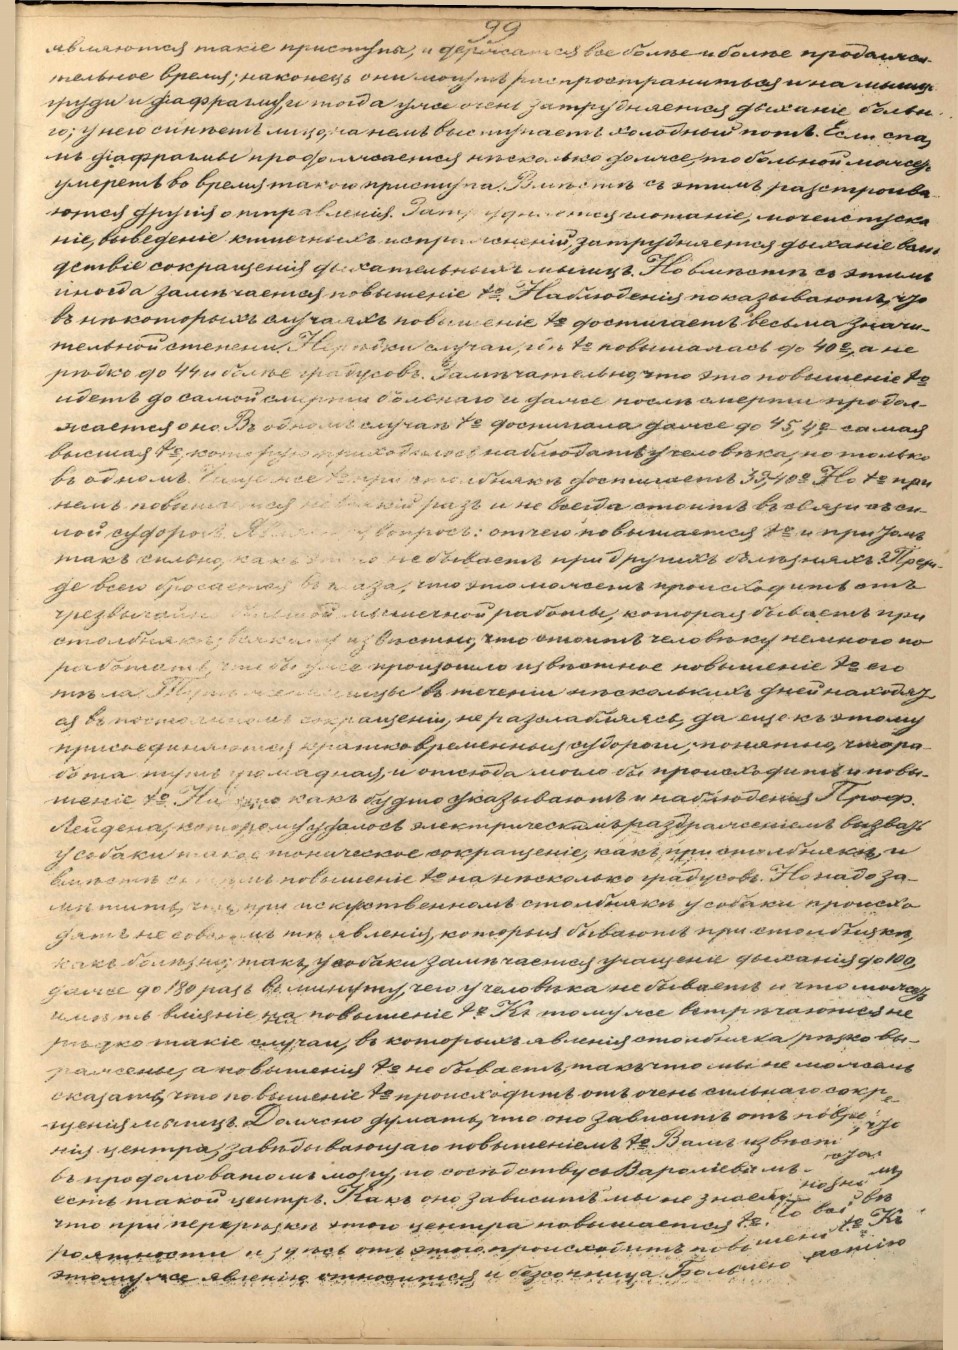 99
являются такіе приступы, и держатся все болѣе и болѣе продолжи-
тельное время; наконецъ они могутъ распространиться и на мышцы
груди и діафрагму, и тогда уже очень затрудняется дыханіе больн-
го; у него синѣетъ лицо, на немъ выступаетъ холодный потъ. Если спаз
мъ діафрагмы продолжается нѣсколько долже, то больной може
умереть во время такого приступа. Вмѣстѣ съ этимъ разстроива-
ются другія отправленія. Затрудняются глотаніе, мочеиспуска
ніе, выведеніе кишечныхъ испражненій, затрудняется дыханіе всл
дствіе сокращенія дыхательныхъ мышцъ. Но вмѣстѣ съ этимъ
иногда замѣчается повышеніе tº. Наблюденія показываютъ, что
въ нѣкоторыхъ случаяхъ повышеніе tº достигаетъ весьма значи-
тельной степени. Нерѣдки случаи, гдѣ tº повышалась до 40º, а не
рѣдко до 44 и болѣе градусовъ. Замѣчательно, что это повышеніе tº
идетъ до самой смерти больнаго и даже послѣ смерти продол-
жается оно. Въ одномъ случаѣ tº достигала даже до 45,4º самая
высшая tº, которую приходилось наблюдать у человѣка, но только
въ одномъ. Чаще же tº при столбнякѣ достигаетъ 39-40º. Но tº при
немъ повышается не всякій разъ и не всегда стоитъ въ связи съ си-
лой судорогъ. вопросъ: отчего повышается tº и при томъ
такъ сильно, какъ не бываетъ при другихъ болѣзняхъ? Преж-
де всего бросается въ глаза, что это можетъ происходить отъ
чрезвычайно мышечной работы, которая бываетъ при
столбнякѣ; всякому извѣстно, что стоитъ человѣку немного по
работать, что бы уже произошло извѣстное повышеніе tº его
тѣла. мышцы въ теченіи нѣсколькихъ дней находят
ся въ постоянномъ сокращеніи, не разслабляясь, да еще къ этому
присоединяются кратковременныя судороги, понятно, что ра-
бота тутъ громадная, и отсюда могло бы происходить и повы-
шеніе tº. На это какъ будто указываютъ и наблюденія Проф.
Лейдена, которому удалось электрическимъ раздраженіемъ вызвать
у собаки такое тоническое сокращеніе, какъ при столбнякѣ, и
вмѣстѣ съ тѣмъ повышеніе tº на нѣсколько градусовъ. Но надо за-
мѣтить, что при искусственномъ столбнякѣ у собаки происхо
дятъ не совсѣмъ тѣ явленія, которыя бываютъ при столбнякѣ,
какъ болѣзни; такъ, у собаки замѣчается учащеніе дыханія до 100,
даже до 180 разъ въ минуту, чего у человѣка не бываетъ и что можетъ
имѣть вліяніе на повышеніе tº. Къ тому же встрѣчаются не
рѣдко такіе случаи, въ которыхъ явленія столбняка рѣзко вы-
ражены, а повышенія tº не бываетъ, такъ что мы не можемъ
сказать, что повышеніе tº происходитъ отъ очень сильнаго сокра
щенія мышцъ. Должно думать, что оно зависитъ отъ
нія центра, завѣдывающаго повышеніемъ tº. Вамъ извѣст что
въ продолговатомъ мозгу, по сосѣдству съ Вароліевымъ
есть такой центръ. Какъ оно зависитъ мы не знаемъ,
что при перерѣзкѣ этого центра повышается tº. По всей вѣ
роятности и здѣсь отъ этого происходитъ повышеніе tº. Къ
этому же явленію относится и безсонница. Большею частію